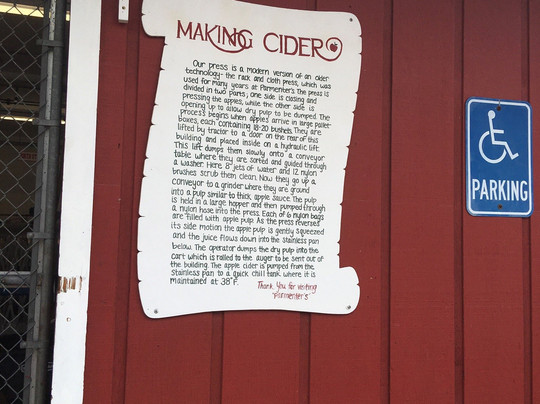 MAKING CIDER
Our press is a modern version of an older
technology- the rack and cloth press, which was
used for many years at Parmenter's. The press is
divided in two parts; one side is closing and
pressing the apples, while the other side is
opening up to allow dry pulp to be dumped. The
process begins when apples arrive in large pallet-
boxes, each containing 18-20 bushels. They are
lifted by tractor to a door on the rear of this
building and placed inside on a hydraulic lift.
This lift dumps them slowly onto a conveyor
table where they are sorted and guided through
a washer. Here 8 jets of water and 12 nylon
brushes scrub them clean. Now they go up a
conveyor to a grinder where they are ground
into a pulp similar to thick apple sauce. The pulp
is held in a large hopper and then pumped through
a nylon hose into the press. Each of 6 nylon bags
are filled with apple pulp. As the press reverses
its side motion the apple pulp is gently squeezed
and the juice flows down into the stainless pan
below. The operator dumps the dry pulp into the
cart which is rolled to the auger to be sent out of
the building. The apple cider is pumped from the
stainless pan to a quick chill tank where it is
maintained at 38°F.
Thank You for visiting
Parmenter's
PARKING